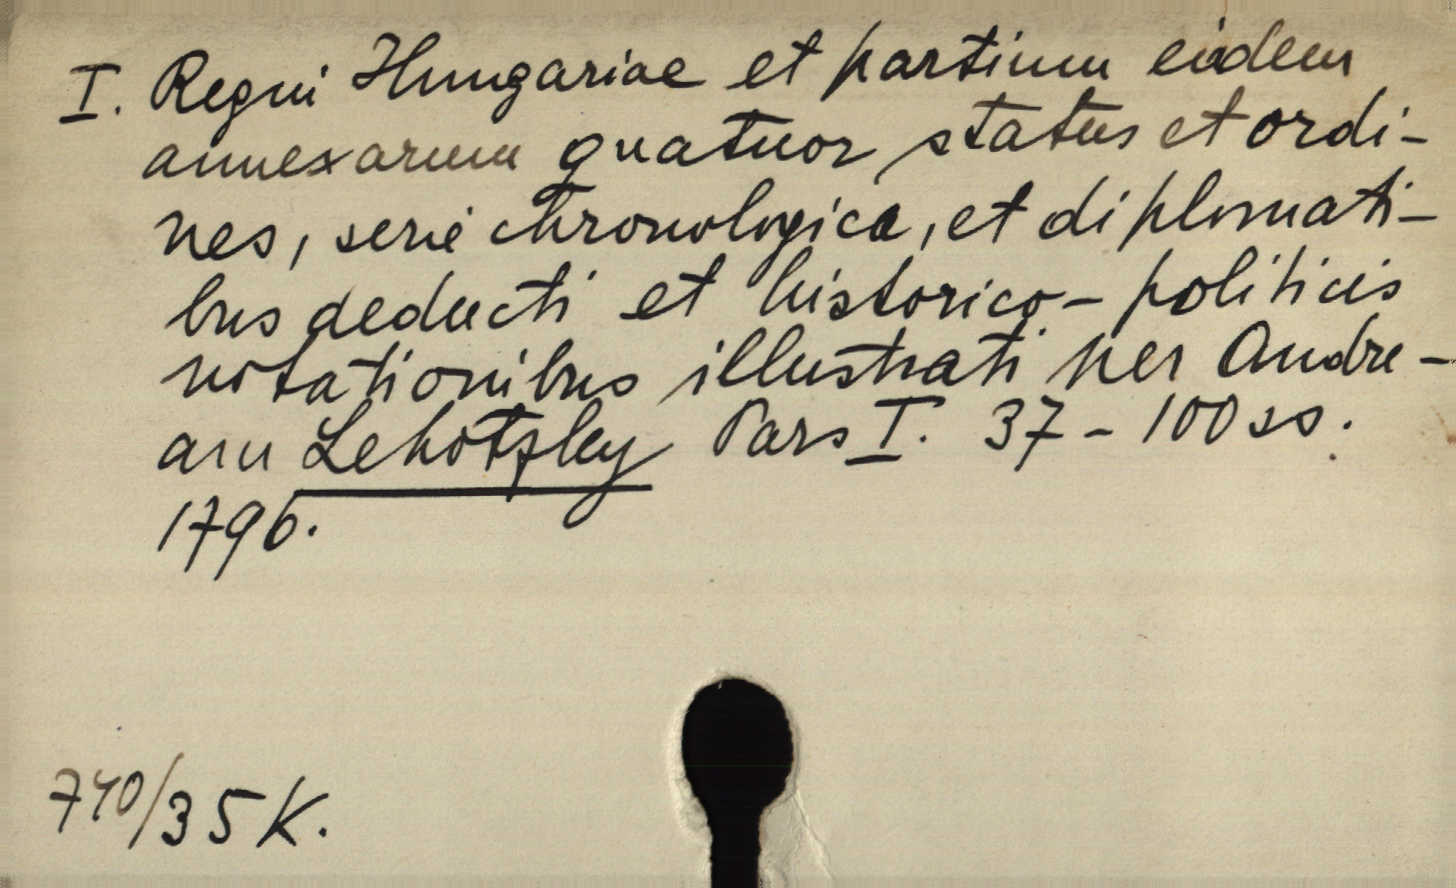 I. Regni Hungariae et partium eidem
annexarum quatuor status et ordi-
nes, serie chronologica, et diplomati-
bus deducti et historico-politicis
notationibus illustrati per Andre-
am Lehotzky Pars I. 37-100 ss.
1796.
740/35 K.